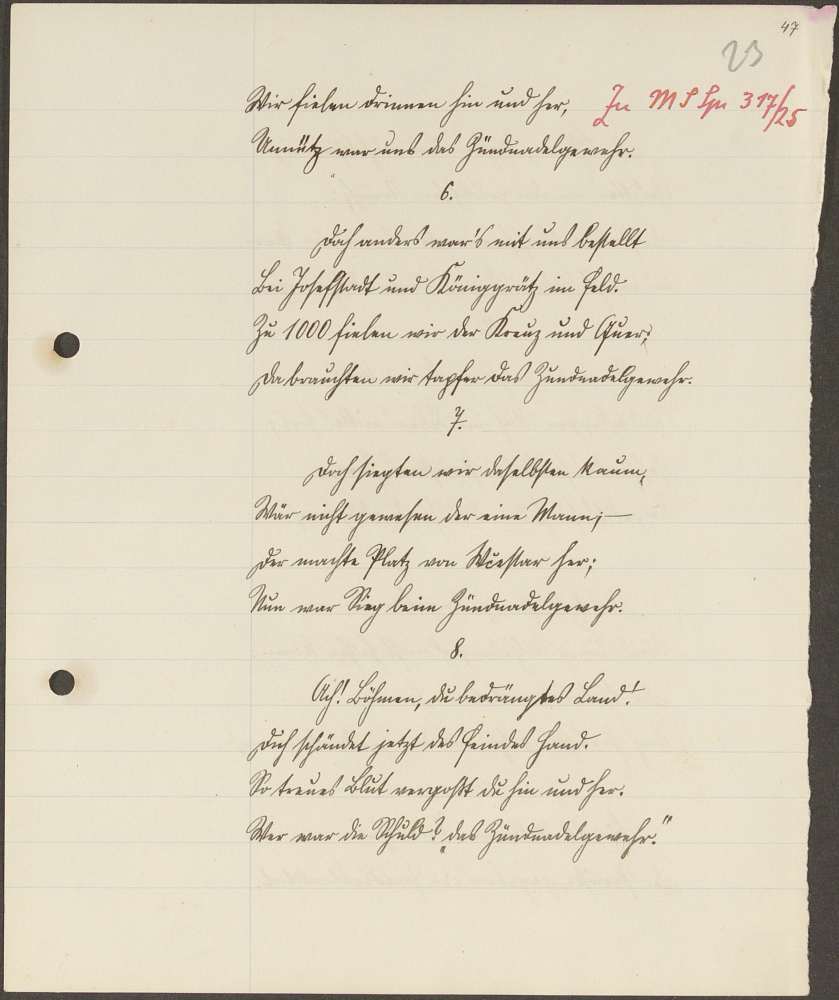 47
23
Wir fielen drinnen hin und her,
Zu MS Spr 317/25
Unnütz war uns das Zündnadelgewehr.
6.
Doch anders war's mit uns bestellt
Bei Josefstadt und Königgrätz im Feld.
Zu 1000 fielen wir der Kreuz und Quer;
Da brauchten wir tapfer das Zündnadelgewehr.
7.
Doch siegten wir daselbsten kaum,
Wär nicht gewesen der eine Mann; —
Der machte Platz von her;
Nun war Sieg beim Zündnadelgewehr.
8.
Ach! Böhmen, du bedrängtes Land!
Dich schändet jetzt des Feindes Hand.
So treues Blut vergoßt du hin und her.
Wer war die Schuld? „das Zündnadelgewehr."